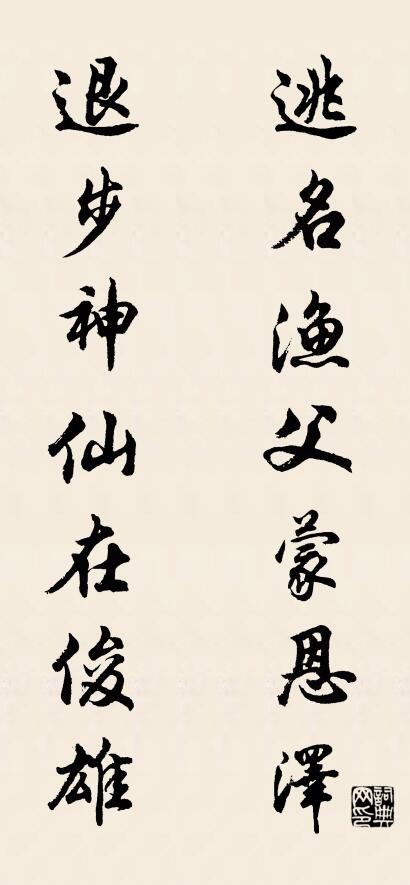 逃名漁父蒙恩澤
退步神仙在俊雄
詞典网印